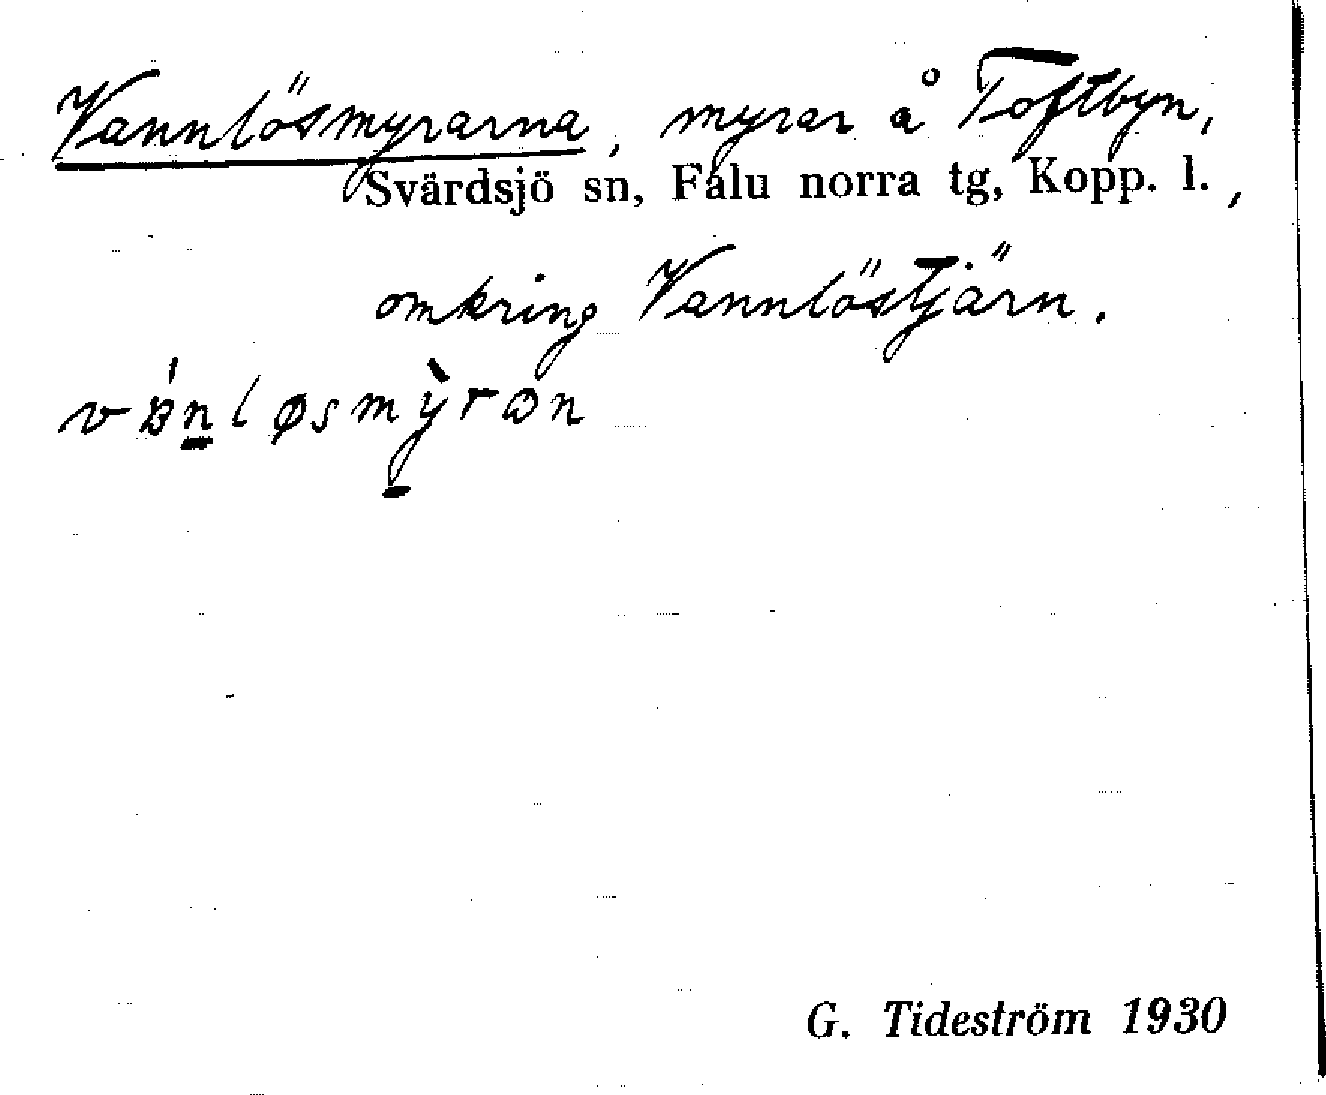 Vannlösmyrarna, myrar å Toftbyn,
Svärdsjö sn, Falu norra tg, Kopp. l.,
omkring Vannlöstjärn.
G. Tideström 1930